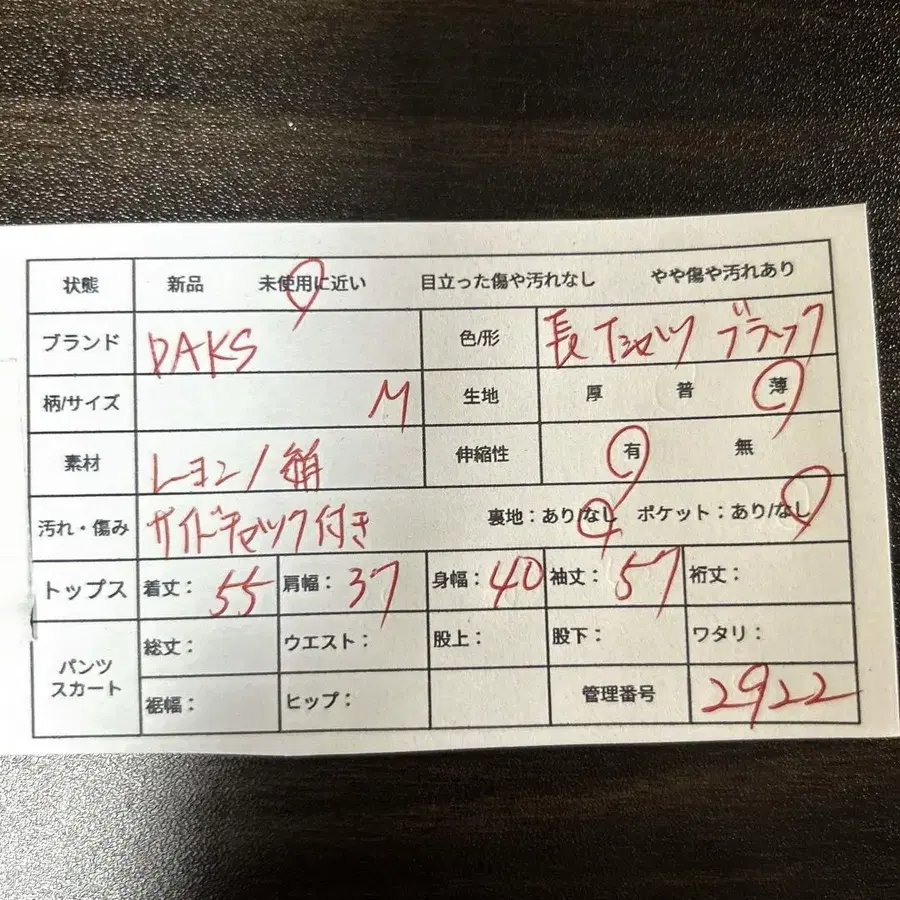 状態 新品 未使用に近い 目立った傷や汚れなし やや傷や汚れあり
ブランド DAKS 色/形 長Tシャツ ブラック
柄/サイズ M 生地 厚 普 薄
素材 レーヨン/綿 伸縮性 有 無
汚れ・傷み サイドチャック付き 裏地：あり/なし ポケット：あり/なし
トップス 着丈： 55 肩幅： 37 身幅： 40 袖丈： 57 裄丈：
パンツ スカート 総丈： ウエスト： 股上： 股下： ワタリ：
裾幅： ヒップ： 管理番号 2922